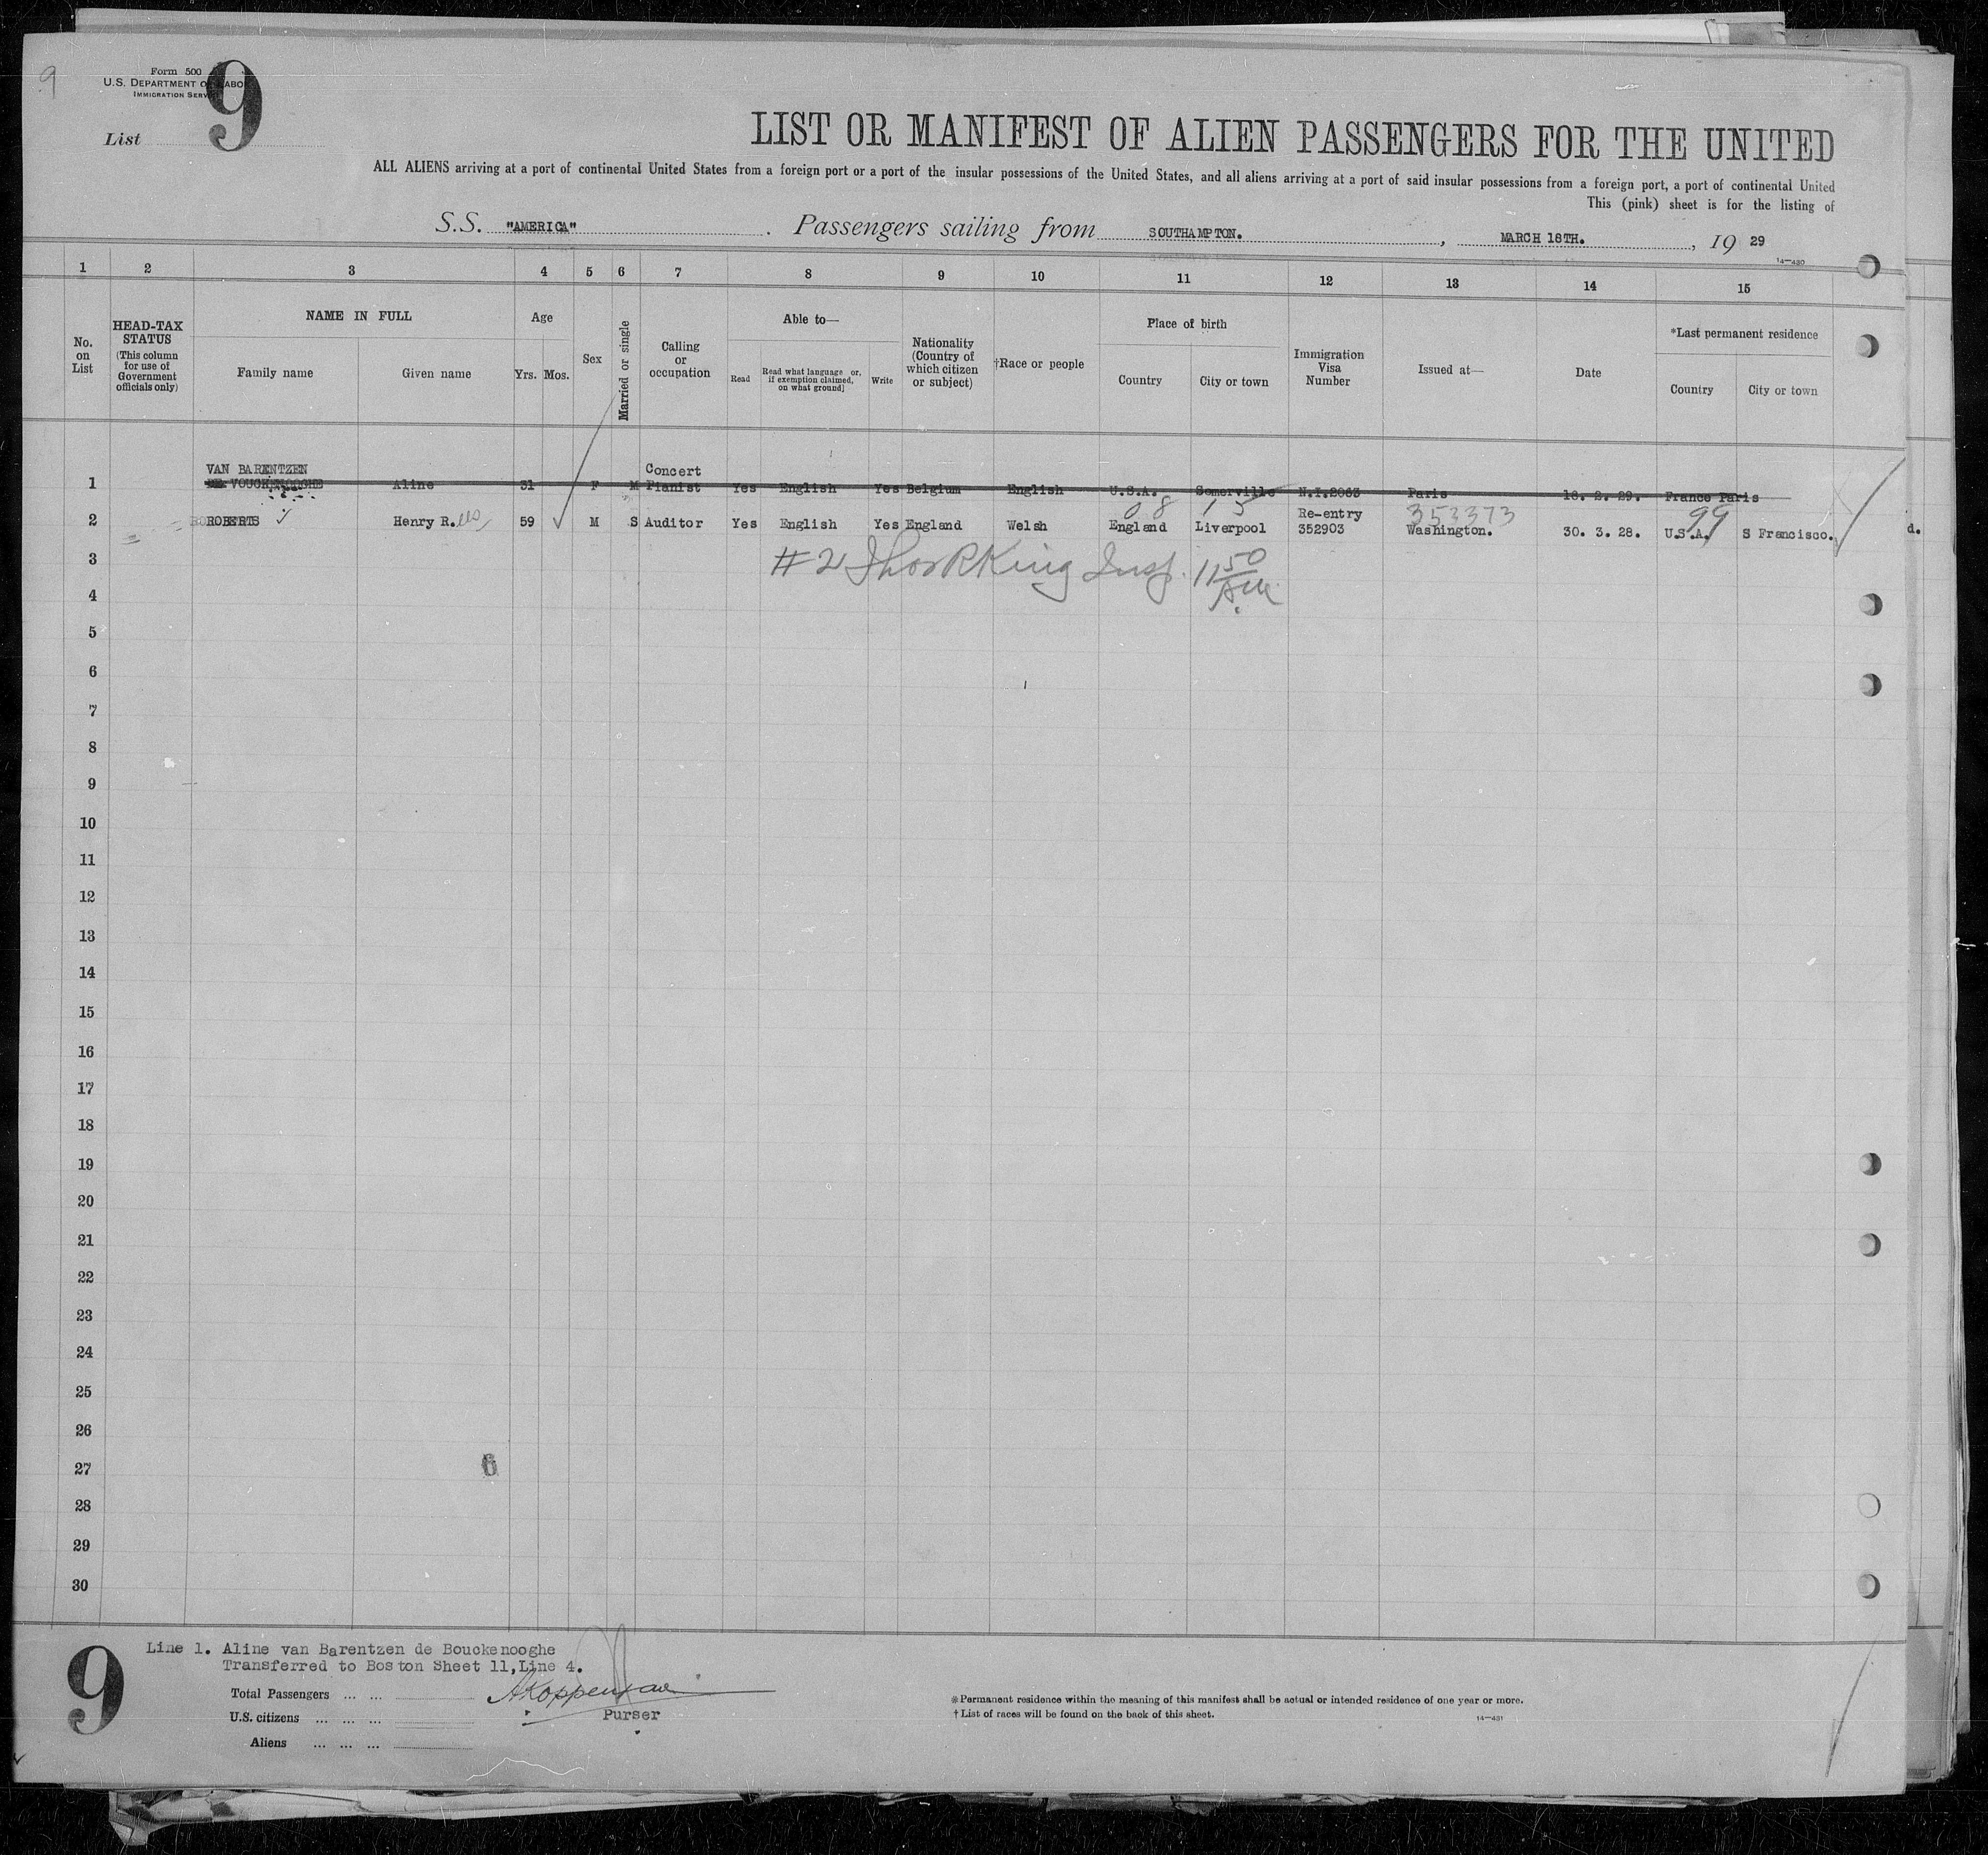 9
Form 500
U.S. DEPARTMENT OF LABOR
IMMIGRATION SERVICE
List 9
LIST OR MANIFEST OF ALIEN PASSENGERS FOR THE UNITED
ALL ALIENS arriving at a port of continental United States from a foreign port or a port of the insular possessions of the United States, and all aliens arriving at a port of said insular possessions from a foreign port, a port of continental United
This (pink) sheet is for the listing of
S.S. "AMERICA" . Passengers sailing from SOUTHAMPTON. , MARCH 18TH. , 19 29
14—430
1 2 3 4 5 6 7 8 9 10 11 12 13 14 15
No. on List
HEAD-TAX STATUS
(This column for use of Government officials only)
NAME IN FULL
Family name Given name
Age
Yrs. Mos.
Sex
Married or single
Calling or occupation
Able to—
Read
Read what language or, if exemption claimed, on what ground]
Write
Nationality (Country of which citizen or subject)
†Race or people
Place of birth
Country City or town
Immigration Visa Number
Issued at—
Date
*Last permanent residence
Country City or town
VAN BARENTZEN Concert
1 Aline 31 F M Pianist Yes English Yes Belgium English U.S.A. Somerville N.I.2063 Paris 18. 2. 29. France Paris
08 15 Re-entry 353373 99
2 ROBERTS Henry R. 59 M S Auditor Yes English Yes England Welsh England Liverpool 352903 Washington. 30. 3. 28. U.S.A. S Francisco. d.
#2 King Insp. 11 50 AM
3
4
5
6
7
8
9
10
11
12
13
14
15
16
17
18
19
20
21
22
23
24
25
26
27 6
28
29
30
9
Line 1. Aline van Barentzen de Bouckenooghe
Transferred to Boston Sheet 11, Line 4.
Total Passengers ... ...
U.S. citizens ... ... ...
Aliens ... ... ...
Purser
*Permanent residence within the meaning of this manifest shall be actual or intended residence of one year or more.
†List of races will be found on the back of this sheet.
14—431